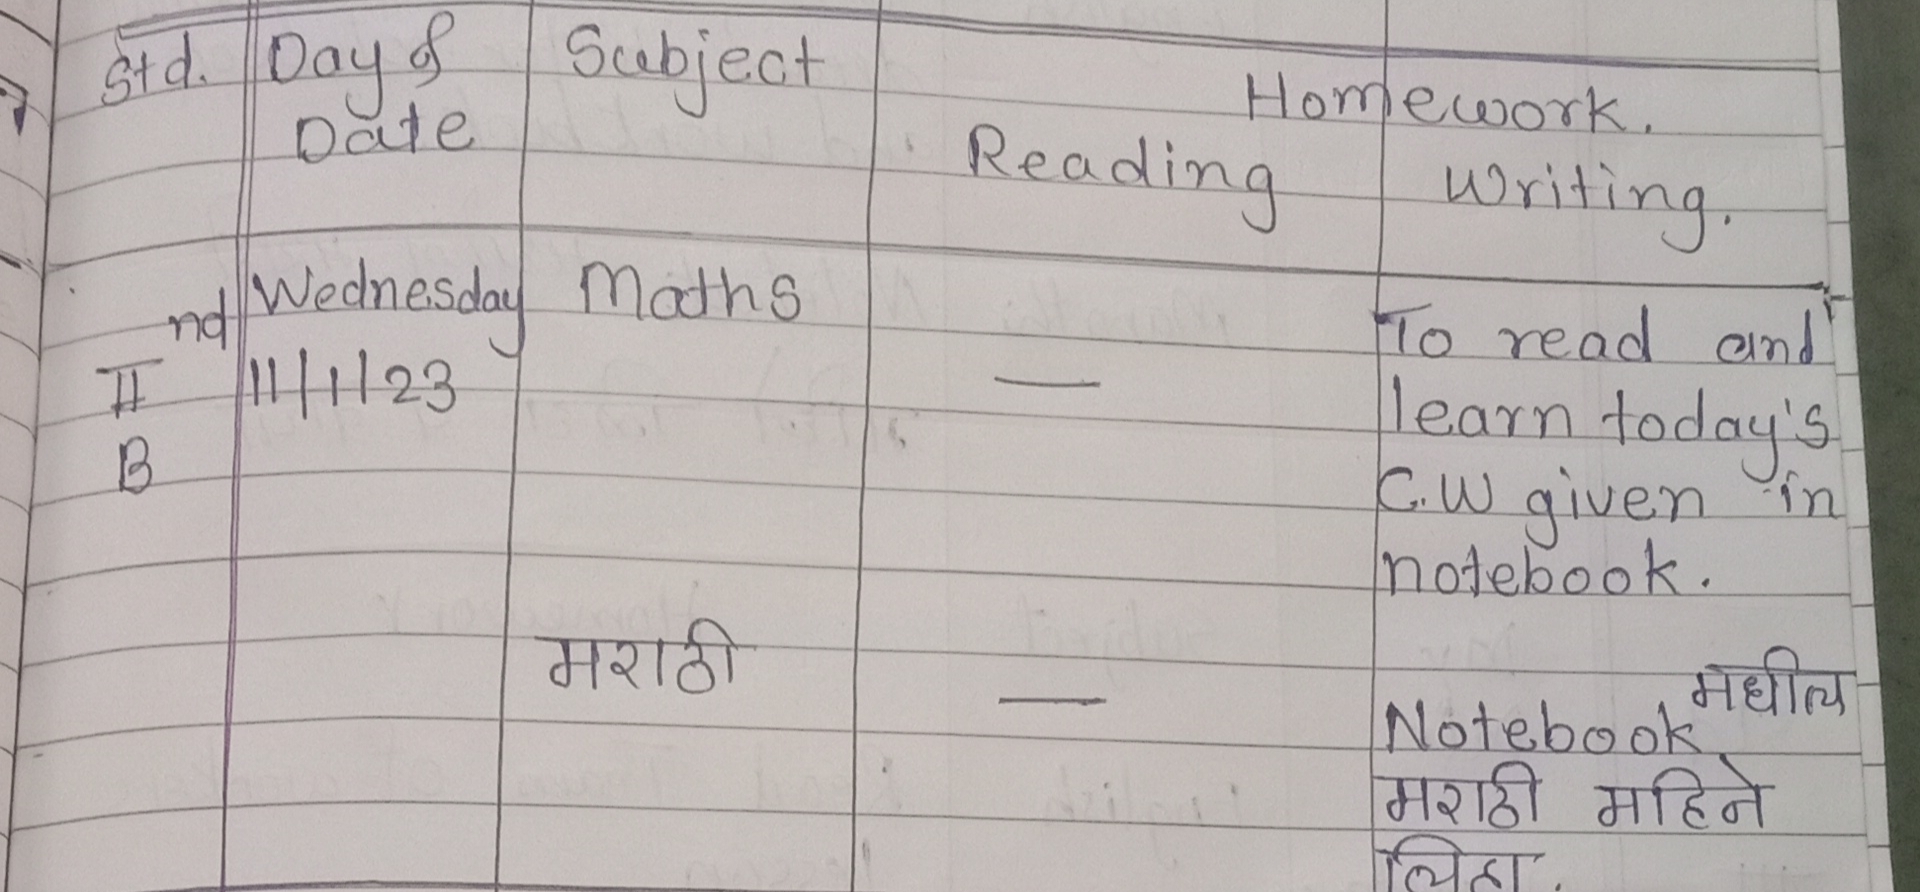 Std. Day & Subject Homework.
Date Reading Writing.
IInd Wednesday Maths — To read and
11/1/23 learn today's
B C.W given in
notebook.
मराठी — Notebook मधील
मराठी महिने
लिहा.